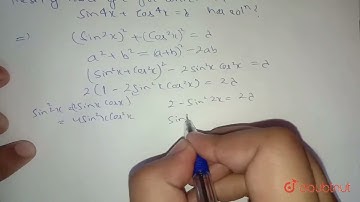 Sin⁴x + Cos⁴x = λ has solⁿ?
=) (Sin²x)² + (Cos²x)² = λ
a² + b² = (a+b)² - 2ab
(Sin²x + Cos²x)² - 2 Sin²x Cos²x = λ
2 (1 - 2 Sin²x Cos²x) = 2λ
2 - Sin²2x = 2λ
= 4 Sin²x Cos²x
Sin
doubtnut